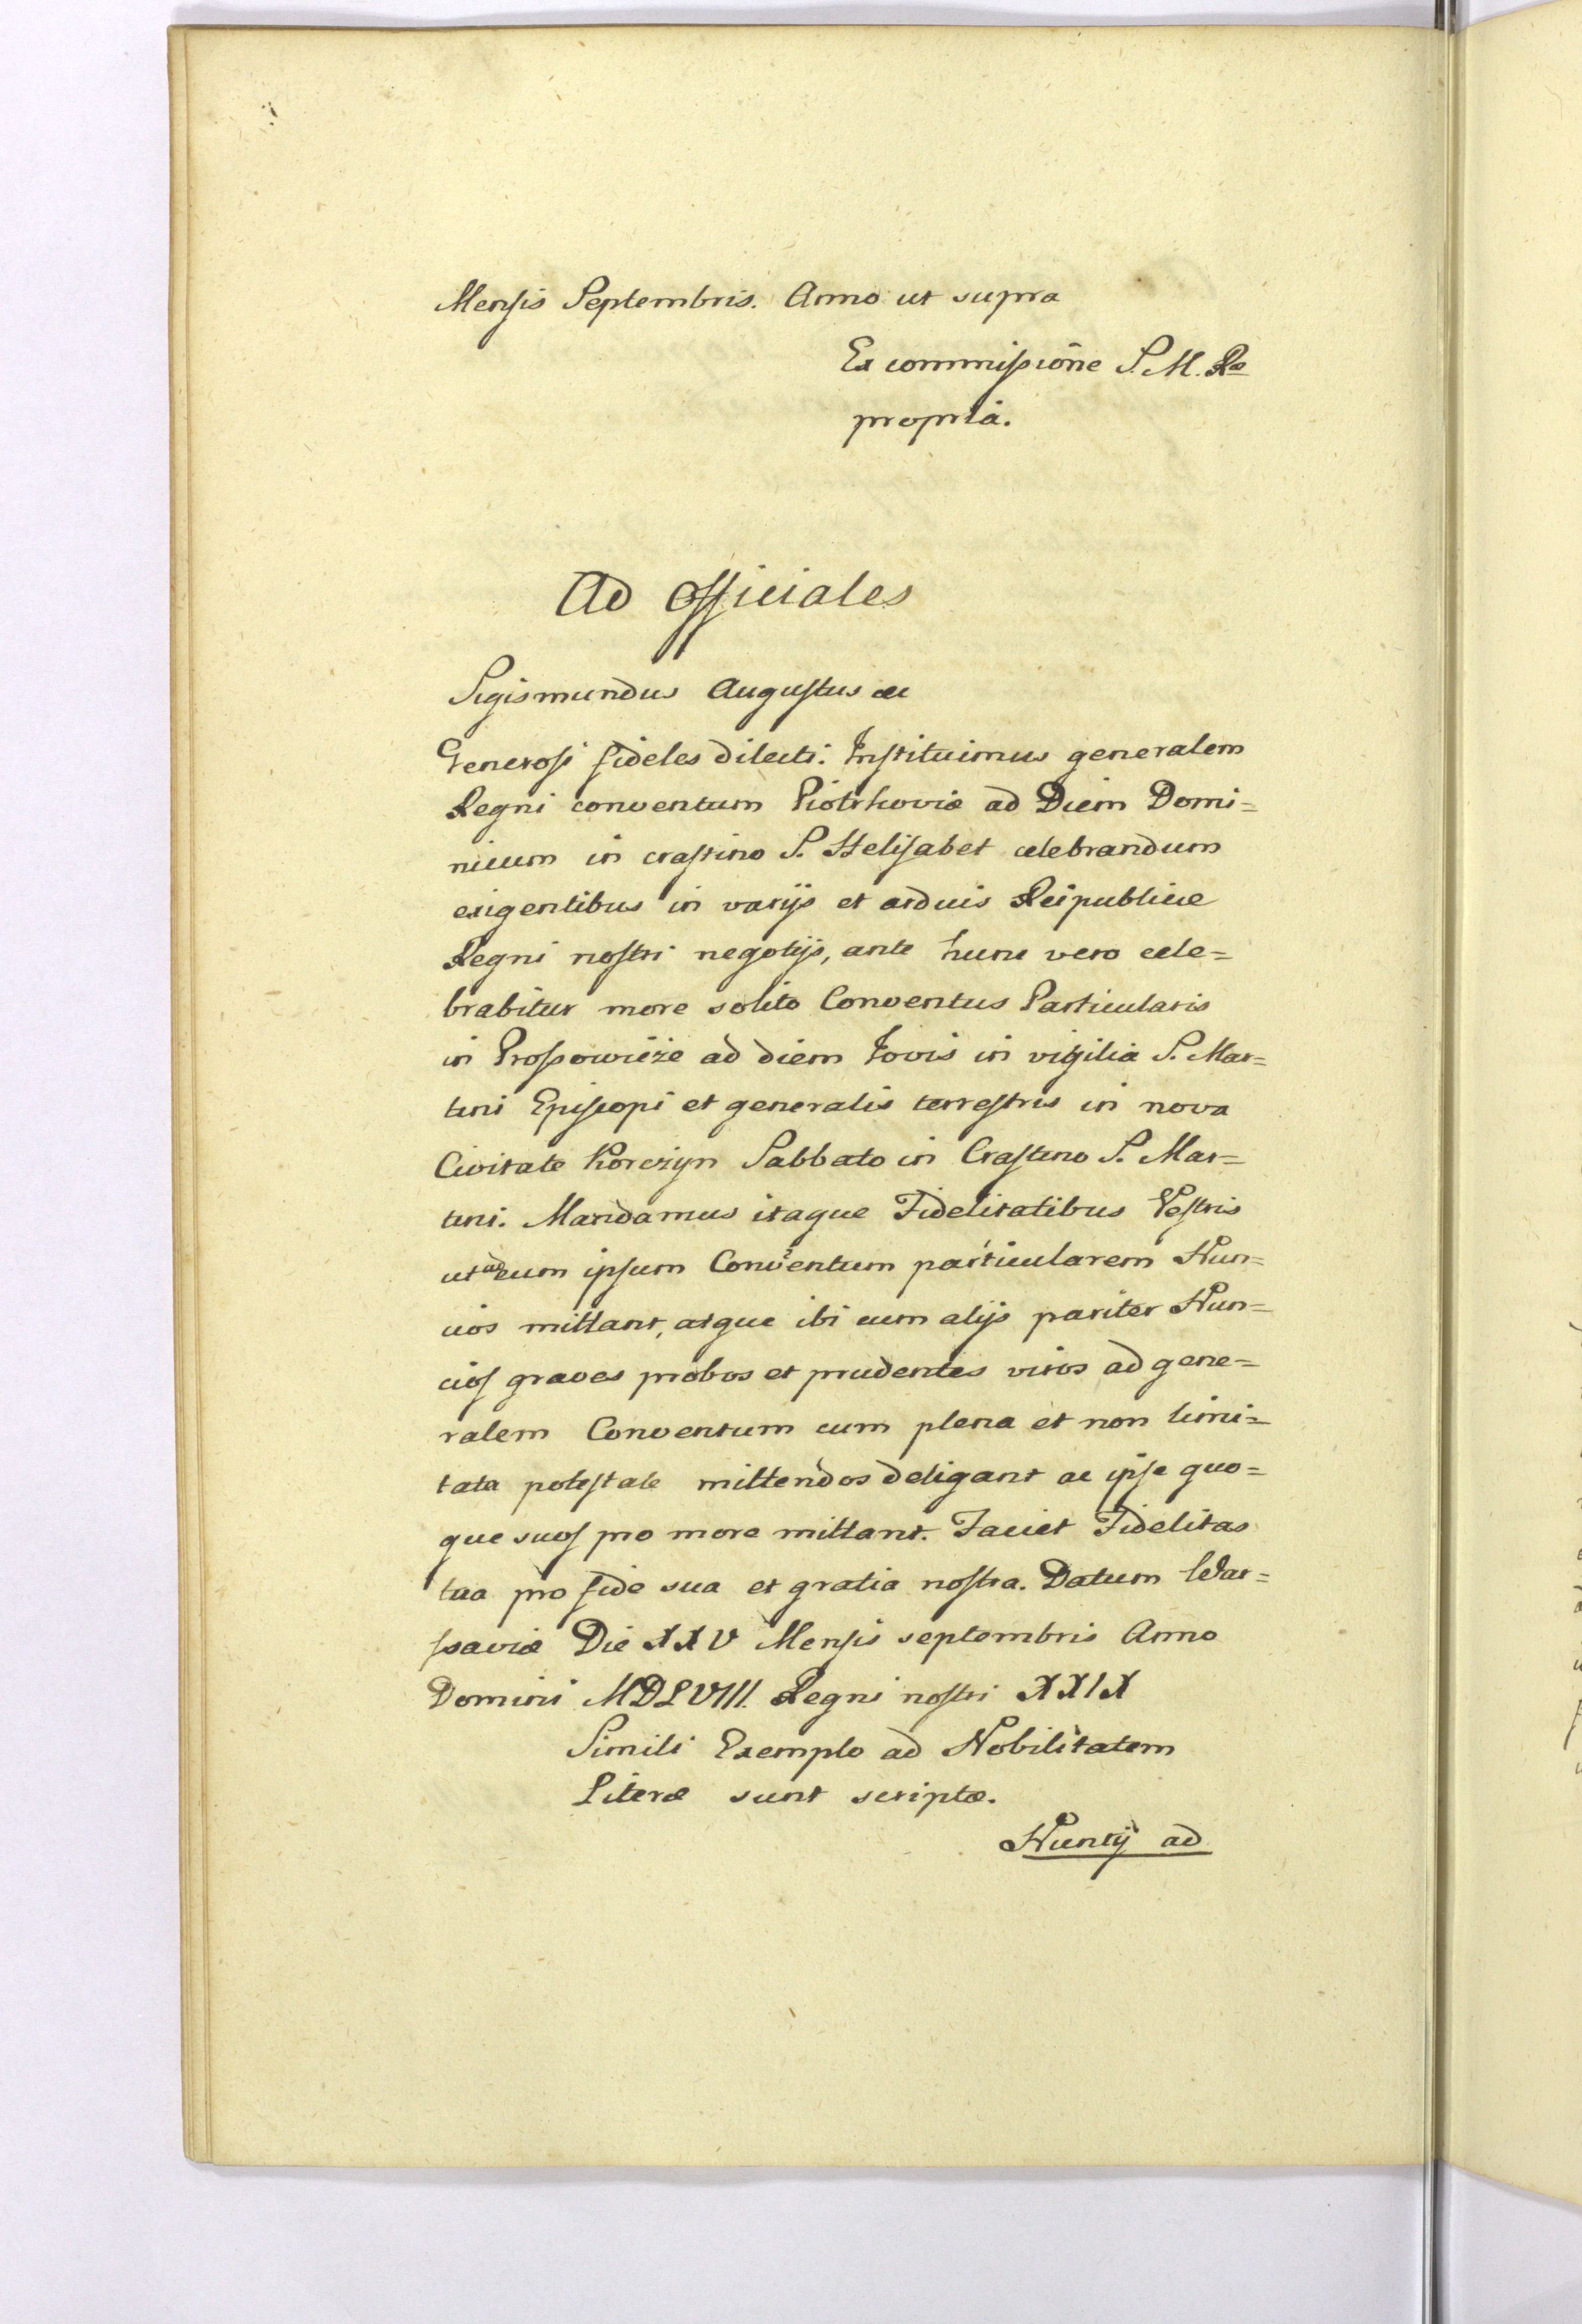 Mensis Septembris. Anno ut supra
Ex commissiõne S. M. Rae
propria.
Ad Officiales
Sigismundus Augustus etc
Generosi fideles dilecti. Instituimus generalem
Regni conventum Piotrkoviæ ad Diem Domi=
nicum in crastino S. Helisabet celebrandum
exigentibus in varijs et arduis Reipublicæ
Regni nostri negotijs, ante hunc vero cele=
brabitur more solito Conventus Particularis
in Prossowicze ad diem Iovis in vigilia S. Mar=
tini Episcopi et generalis terrestris in nova
Civitate Korczyn Sabbato in Crastino S. Mar=
tini. Mandamus itaque Fidelitatibus Vestris
ut ad eum ipsum Conventum particularem Nun=
cios mittant, atque ibi cum alijs pariter Nun=
cios graves probos et prudentes viros ad gene=
ralem Conventum cum plena et non limi=
tata potestate mittendos deligant ac ipse quo=
que suos pro more mittant. Faciet Fidelitas
tua pro fide sua et gratia nostra. Datum War=
ssaviæ Die XXV Mensis septembris Anno
Domini MDLVIII. Regni nostri XXIX
Simili Exemplo ad Nobilitatem
Literæ sunt scriptæ.
Huncij ad